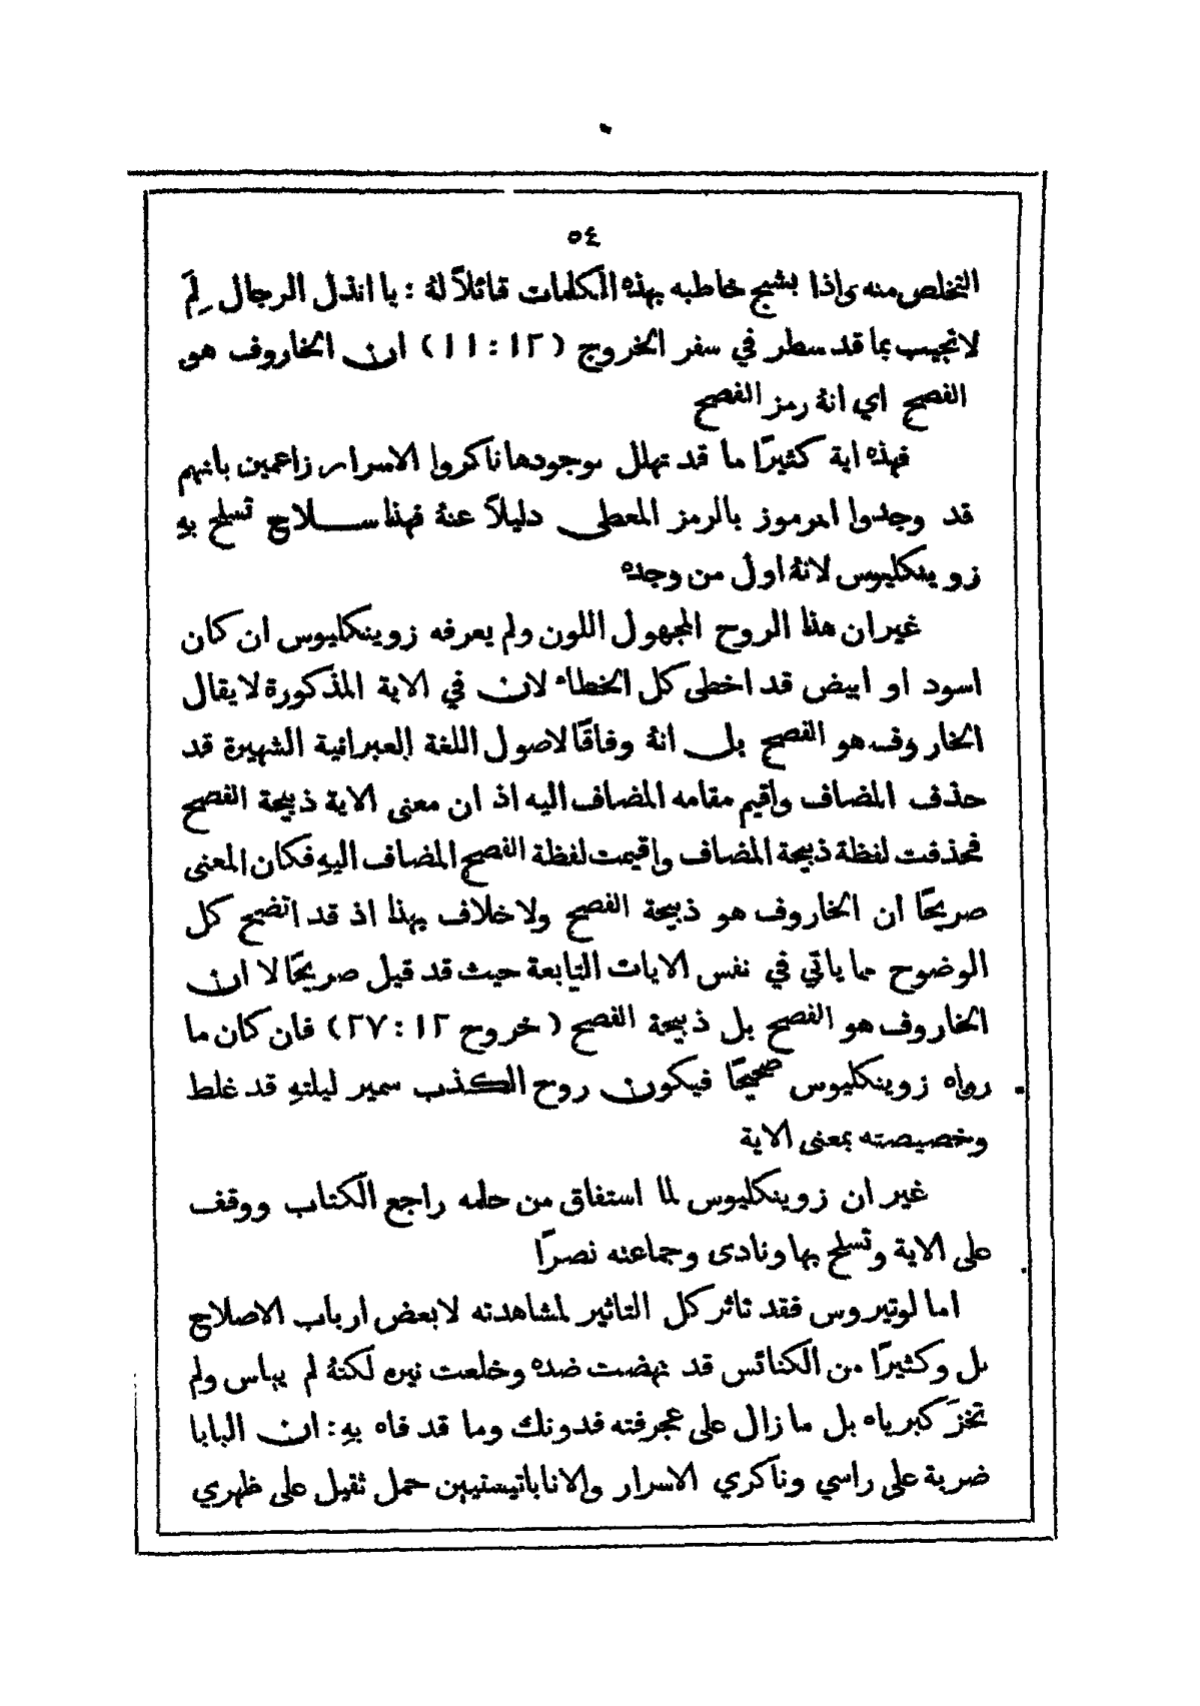 ٥٤
التخلص منه واذا بشبح خاطبه بهذه الكلمات قائلاً لهُ : يا انذل الرجال لِمَ
لا تجيب بما قد سطر في سفر الخروج (١٢ : ١١) ان الخاروف هو
الفصح اي انهُ رمز الفصح
فهذه اية كثيرًا ما قد تهلل بوجودها ناكروا الاسرار زاعمين بانهم
قد وجدوا المرموز بالرمز المعطى دليلاً عنهُ فهذا سلاح تسلح بهِ
زوينكليوس لانهُ اول من وجده
غير ان هذا الروح المجهول اللون ولم يعرفه زوينكليوس ان كان
اسود او ابيض قد اخطى كل الخطاء لان في الاية المذكورة لا يقال
الخاروف هو الفصح بل انهُ وفاقًا لاصول اللغة العبرانية الشهيرة قد
حذف المضاف واقيم مقامه المضاف اليه اذ ان معنى الاية ذبيحة الفصح
فحذفت لفظة ذبيحة المضاف واقيمت لفظة الفصح المضاف اليهِ فكان المعنى
صريحًا ان الخاروف هو ذبيحة الفصح ولا خلاف بهذا اذ قد اتضح كل
الوضوح مما ياتي في نفس الايات التابعة حيث قد قيل صريحًا لا ان
الخاروف هو الفصح بل ذبيحة الفصح (خروح ١٢ : ٢٧) فان كان ما
رواه زوينكليوس صحيحًا فيكون روح الكذب سمير ليلتهِ قد غلط
وخصيصته بمعنى الاية
غير ان زوينكليوس لما استفاق من حلمه راجع الكتاب ووقف
على الاية وتسلح بها ونادى وجماعته نصرًا
اما لوتيروس فقد تاثر كل التاثير لمشاهدته لا بعض ارباب الاصلاح
بل وكثيرًا من الكنائس قد نهضت ضده وخلعت نيره لكنهُ لم يباس ولم
تخزَ كبرياه بل ما زال على عجرفته فدونك وما قد فاه بهِ : ان البابا
ضربة على راسي وناكري الاسرار والاناباتيستيين حمل ثقيل على ظهري